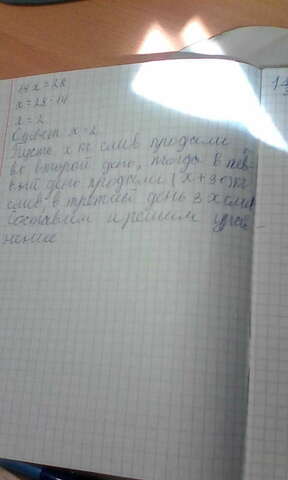 14 x = 28
x = 28 : 14
x = 2
Ответ x = 2
Пусть x кг слив продали
во второй день, тогда в пер-
вый день продали (x + 30) кг
слив в третий день 3 x слив
Составим и решим урав-
нение
14